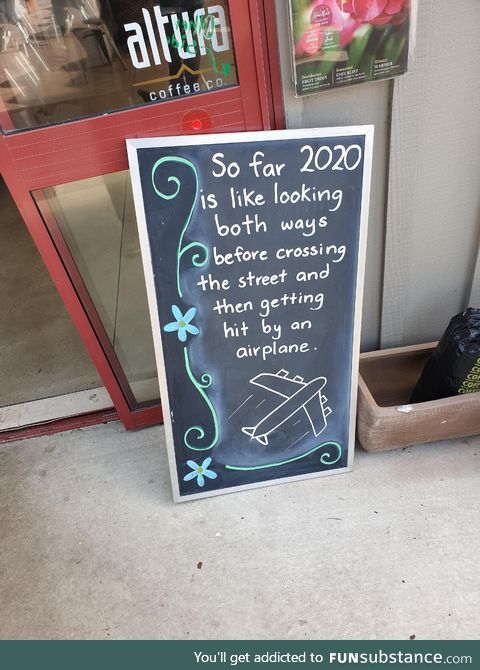 altura
coffee co.
So far 2020
is like looking
both ways
before crossing
the street and
then getting
hit by an
airplane.
You'll get addicted to FUNsubstance.com